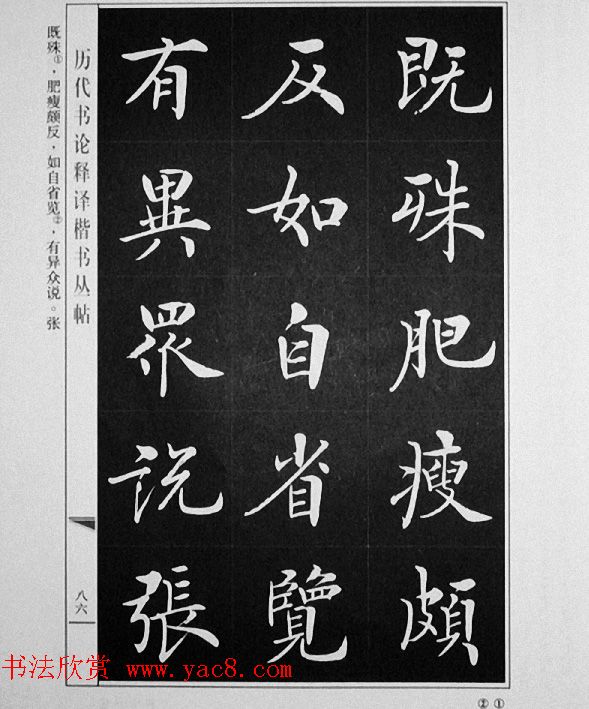 既殊肥瘦颇
反如自省覽
有異眾说張
历代书论释译楷书丛帖
八六
既殊①，肥瘦颇反，如自省览②，有异众说。张
② ①
书法欣赏 www.yac8.com